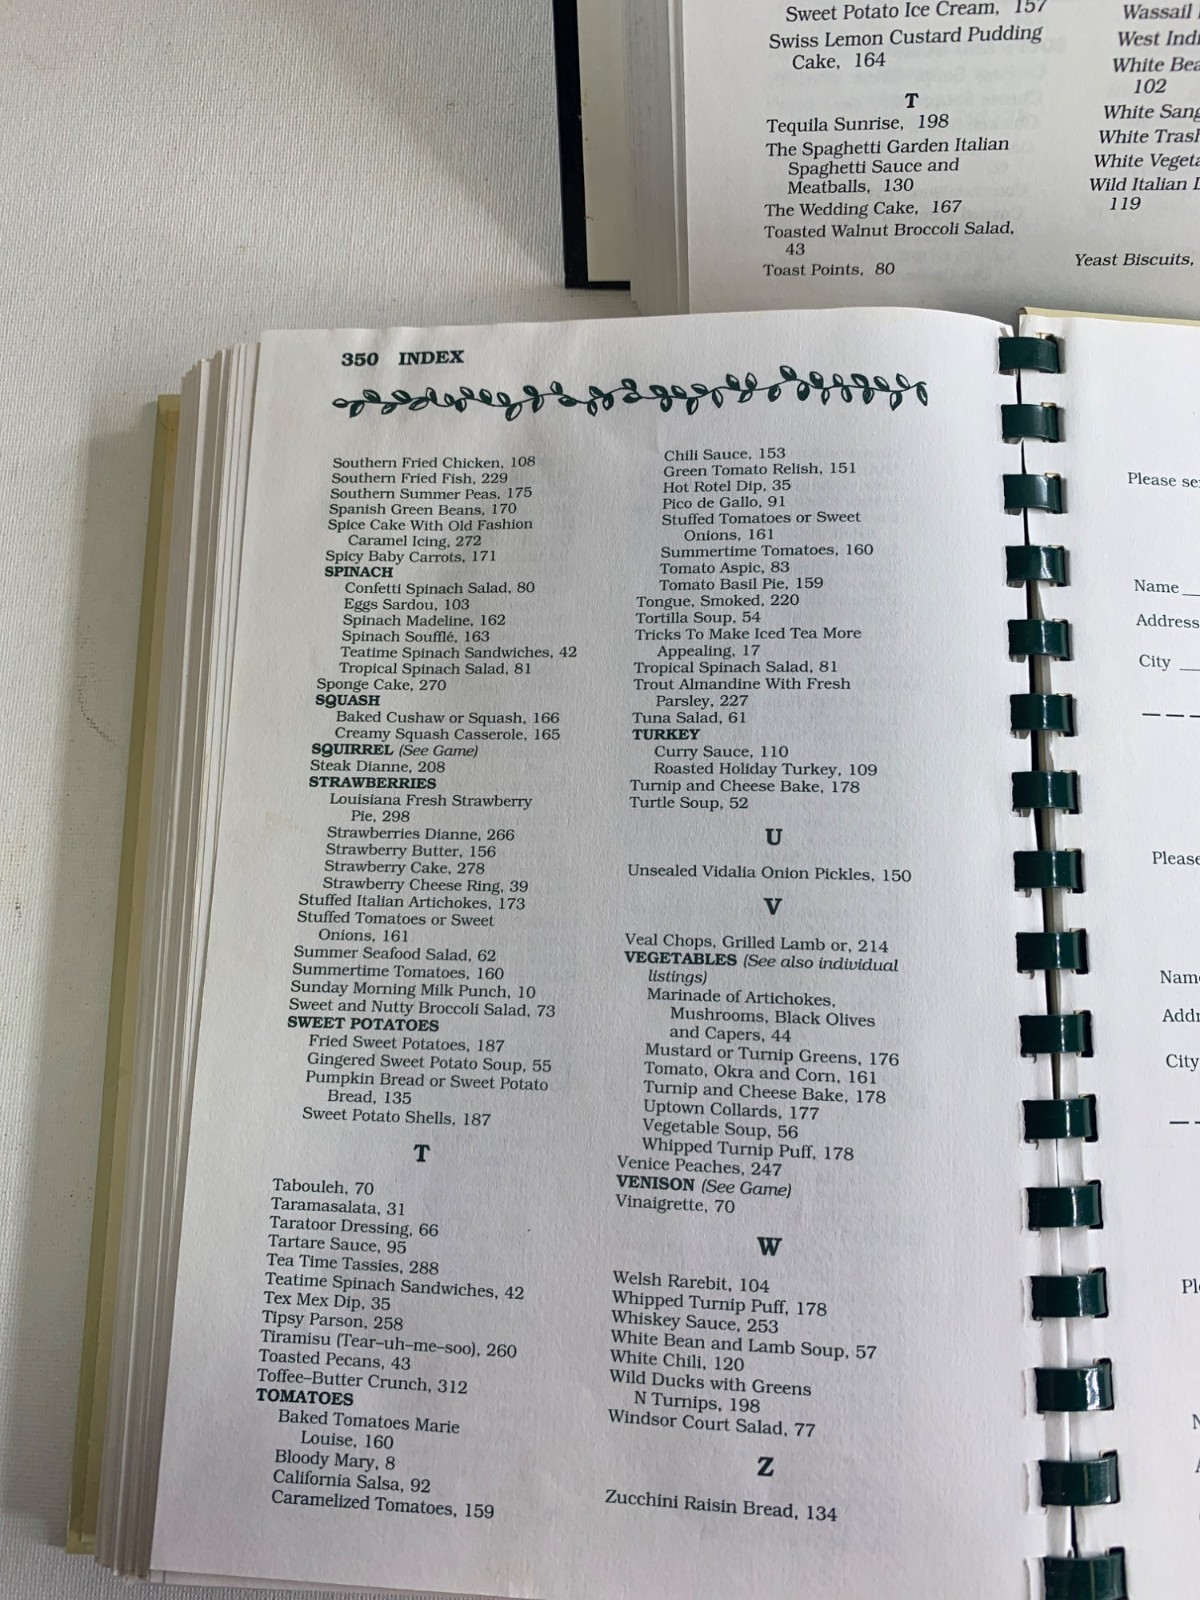 Sweet Potato Ice Cream, 157
Swiss Lemon Custard Pudding
Cake, 164
T
Tequila Sunrise, 198
The Spaghetti Garden Italian
Spaghetti Sauce and
Meatballs, 130
The Wedding Cake, 167
Toasted Walnut Broccoli Salad,
43
Toast Points, 80
Wassail
West Indi
White Bea
102
White Sang
White Trash
White Vegeta
Wild Italian
119
Yeast Biscuits,
350 INDEX
Southern Fried Chicken, 108
Southern Fried Fish, 229
Southern Summer Peas, 175
Spanish Green Beans, 170
Spice Cake With Old Fashion
Caramel Icing, 272
Spicy Baby Carrots, 171
SPINACH
Confetti Spinach Salad, 80
Eggs Sardou, 103
Spinach Madeline, 162
Spinach Soufflé, 163
Teatime Spinach Sandwiches, 42
Tropical Spinach Salad, 81
Sponge Cake, 270
SQUASH
Baked Cushaw or Squash, 166
Creamy Squash Casserole, 165
SQUIRREL (See Game)
Steak Dianne, 208
STRAWBERRIES
Louisiana Fresh Strawberry
Pie, 298
Strawberries Dianne, 266
Strawberry Butter, 156
Strawberry Cake, 278
Strawberry Cheese Ring, 39
Stuffed Italian Artichokes, 173
Stuffed Tomatoes or Sweet
Onions, 161
Summer Seafood Salad, 62
Summertime Tomatoes, 160
Sunday Morning Milk Punch, 10
Sweet and Nutty Broccoli Salad, 73
SWEET POTATOES
Fried Sweet Potatoes, 187
Gingered Sweet Potato Soup, 55
Pumpkin Bread or Sweet Potato
Bread, 135
Sweet Potato Shells, 187
T
Tabouleh, 70
Taramasalata, 31
Taratoor Dressing, 66
Tartare Sauce, 95
Tea Time Tassies, 288
Teatime Spinach Sandwiches, 42
Tex Mex Dip, 35
Tipsy Parson, 258
Tiramisu (Tear–uh–me–soo), 260
Toasted Pecans, 43
Toffee–Butter Crunch, 312
TOMATOES
Baked Tomatoes Marie
Louise, 160
Bloody Mary, 8
California Salsa, 92
Caramelized Tomatoes, 159
Chili Sauce, 153
Green Tomato Relish, 151
Hot Rotel Dip, 35
Pico de Gallo, 91
Stuffed Tomatoes or Sweet
Onions, 161
Summertime Tomatoes, 160
Tomato Aspic, 83
Tomato Basil Pie, 159
Tongue, Smoked, 220
Tortilla Soup, 54
Tricks To Make Iced Tea More
Appealing, 17
Tropical Spinach Salad, 81
Trout Almandine With Fresh
Parsley, 227
Tuna Salad, 61
TURKEY
Curry Sauce, 110
Roasted Holiday Turkey, 109
Turnip and Cheese Bake, 178
Turtle Soup, 52
U
Unsealed Vidalia Onion Pickles, 150
V
Veal Chops, Grilled Lamb or, 214
VEGETABLES (See also individual
listings)
Marinade of Artichokes,
Mushrooms, Black Olives
and Capers, 44
Mustard or Turnip Greens, 176
Tomato, Okra and Corn, 161
Turnip and Cheese Bake, 178
Uptown Collards, 177
Vegetable Soup, 56
Whipped Turnip Puff, 178
Venice Peaches, 247
VENISON (See Game)
Vinaigrette, 70
W
Welsh Rarebit, 104
Whipped Turnip Puff, 178
Whiskey Sauce, 253
White Bean and Lamb Soup, 57
White Chili, 120
Wild Ducks with Greens
N Turnips, 198
Windsor Court Salad, 77
Z
Zucchini Raisin Bread, 134
Please se
Name
Address
City
Please
Name
Addr
City
Pl
N